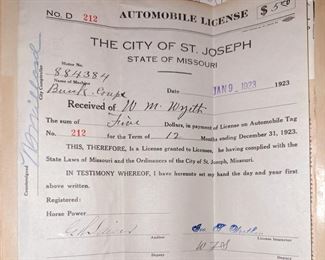 No. D 212 AUTOMOBILE LICENSE $5.00
THE CITY OF ST. JOSEPH
STATE OF MISSOURI
Motor No.
884384
Name of Machine
Buick Coupe
Date JAN 9 - 1923 1923
Received of W. M. Wyeth
The sum of Five Dollars, in payment of License on Automobile Tag
No. 212 for the Term of 12 Months ending December 31, 1923.
THIS, THEREFORE, Is a License granted to Licensee, he having complied with the
State Laws of Missouri and the Ordinances of the City of St. Joseph, Missouri.
IN TESTIMONY WHEREOF, I have hereto set my hand the day and year first
above written.
Registered:
Horse Power
Auditor
License Inspector
Deputy
Deputy
Countersigned
City Comptroller